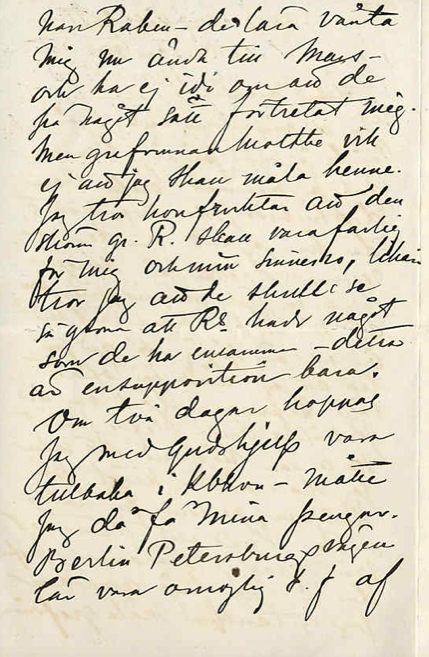 han Raben – de lära vänta
mig nu ända till Mars –
och ha ej idé om att de
på något sätt förtretat mig.
Men grefvinnan Moltke vill
ej att jag skall måla henne.
Jag tror hon fruktar att den
sköna gr. R. skall vara farlig
för mig och min sinnesro, likaså
tror jag att de skulle se
så gerna att Rs hade något
som de ha ensamma – detta
är en supposition bara.
Om två dagar hoppas
jag med Guds hjelp vara
tillbaka i Kbhvn – måtte
jag då få mina pengar.
Berlin Petersburg vägen
lär vara omöjlig t. f af